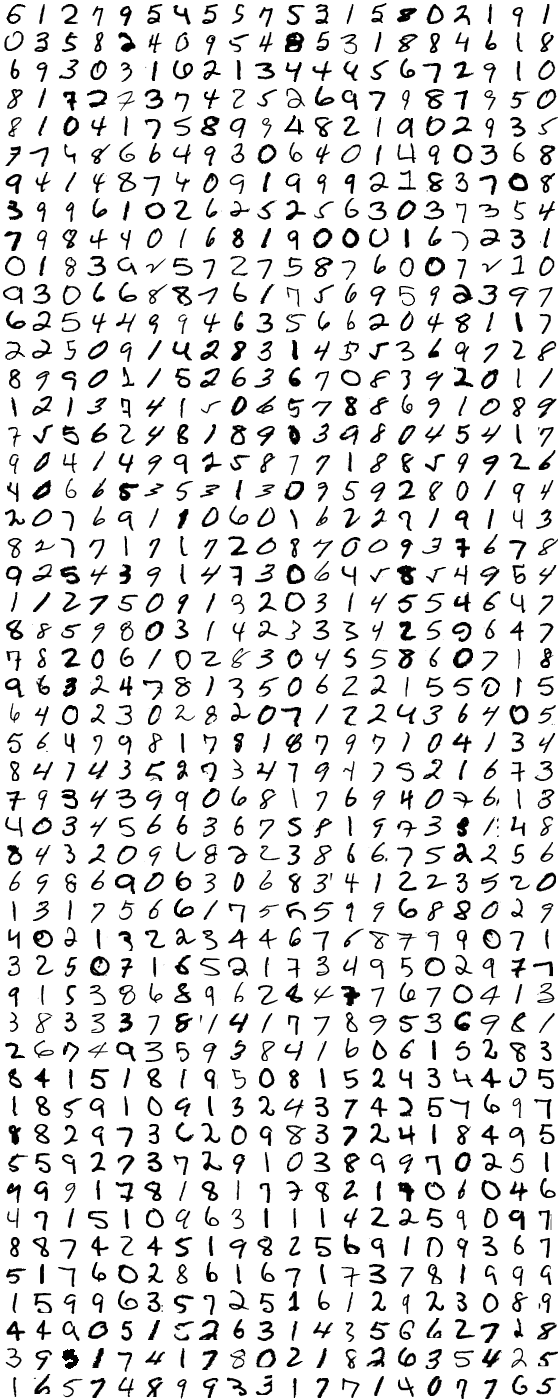 6 1 2 7 9 5 4 5 5 7 5 3 1 5 8 0 2 1 9 1
0 3 5 8 2 4 0 9 5 4 8 5 3 1 8 8 4 6 1 8
6 9 3 0 3 1 6 2 1 3 4 4 4 5 6 7 2 9 1 0
8 1 7 2 7 3 7 4 2 5 2 6 9 7 9 8 7 9 5 0
8 1 0 4 1 7 5 8 9 9 4 8 2 1 9 0 2 9 3 5
7 7 4 8 6 6 4 9 3 0 6 4 0 1 4 9 0 3 6 8
9 4 1 4 8 7 4 0 9 1 9 9 9 2 1 8 3 7 0 8
3 9 9 6 1 0 2 6 2 5 2 5 6 3 0 3 7 3 5 4
7 9 8 4 4 0 1 6 8 1 9 0 0 0 1 6 7 2 3 1
0 1 8 3 9 2 5 7 2 7 5 8 7 6 0 0 7 2 1 0
9 3 0 6 6 8 8 7 6 1 7 5 6 9 5 9 2 3 9 7
6 2 5 4 4 9 9 4 6 3 5 6 6 2 0 4 8 1 1 7
2 2 5 0 9 1 4 2 8 3 1 4 5 5 3 6 9 7 2 8
8 9 9 0 1 1 5 2 6 3 6 7 0 8 3 9 2 0 1 1
1 2 1 3 7 4 1 5 0 6 5 7 8 8 6 9 1 0 8 9
7 5 5 6 2 4 8 1 8 9 0 3 9 8 0 4 5 4 1 7
9 0 4 1 4 9 9 2 5 8 7 7 1 8 8 5 9 9 2 6
4 0 6 6 5 3 5 3 1 3 0 9 5 9 2 8 0 1 9 4
2 0 7 6 9 1 1 0 6 0 1 6 2 2 7 1 9 1 4 3
8 2 7 7 1 7 1 7 2 0 8 7 0 0 9 3 7 6 7 8
9 2 5 4 3 9 1 4 7 3 0 6 4 5 8 5 4 9 5 4
1 1 2 7 5 0 9 1 3 2 0 3 1 4 5 5 4 6 4 7
8 8 5 9 8 0 3 1 4 2 3 3 3 4 2 5 0 6 4 7
7 8 2 0 6 1 0 2 8 3 0 4 5 5 8 6 0 7 1 8
9 6 3 2 4 7 8 1 3 5 0 6 2 2 1 5 5 0 1 5
6 4 0 2 3 0 2 8 2 0 7 1 2 2 4 3 6 4 0 5
5 6 4 7 9 8 1 7 8 1 8 7 9 7 1 0 4 1 3 4
8 4 7 4 3 5 2 7 3 4 7 9 4 7 5 2 1 6 7 3
7 9 3 4 3 9 9 0 6 8 1 7 6 9 4 0 7 6 1 3
4 0 3 4 5 6 6 3 6 7 5 8 1 9 7 3 8 1 4 8
8 4 3 2 0 9 6 8 2 2 3 8 6 6 7 5 2 2 5 6
6 9 8 6 9 0 6 3 0 6 8 3 4 1 2 2 3 5 2 0
1 3 1 7 5 6 6 1 7 5 5 5 9 9 6 8 8 0 2 9
4 0 2 1 3 2 2 3 4 4 6 7 6 8 7 9 9 0 7 1
3 2 5 0 7 1 6 5 2 1 7 3 4 9 5 0 2 9 7 7
9 1 5 3 8 6 8 9 6 2 6 4 7 7 6 7 0 4 1 3
3 8 3 3 3 7 8 1 4 1 7 7 8 9 5 3 6 9 8 1
2 6 7 4 9 3 5 9 3 8 4 1 6 0 6 1 5 2 8 3
8 4 1 5 1 8 1 9 5 0 8 1 5 2 4 3 4 4 0 5
1 8 5 9 1 0 9 1 3 2 4 3 7 4 2 5 7 6 9 7
8 8 2 9 7 3 6 2 0 9 8 3 7 2 4 1 8 4 9 5
5 5 9 2 7 3 7 2 9 1 0 3 8 9 9 7 0 2 5 1
9 9 9 1 7 8 1 8 1 7 7 8 2 1 9 0 6 0 4 6
4 7 1 5 1 0 9 6 3 1 1 1 4 2 2 5 9 0 9 7
8 8 7 4 2 4 5 1 9 8 2 5 6 9 1 0 9 3 6 7
5 1 7 6 0 2 8 6 1 6 7 1 7 3 7 8 1 9 9 9
1 5 9 9 6 3 5 7 2 5 1 6 1 2 9 2 3 0 8 9
4 4 9 0 5 1 5 2 6 3 1 4 3 5 6 6 2 7 2 8
3 9 5 1 7 4 1 7 8 0 2 1 8 2 6 3 5 4 2 5
1 6 5 7 4 8 9 9 3 3 1 7 7 1 4 0 7 7 6 5